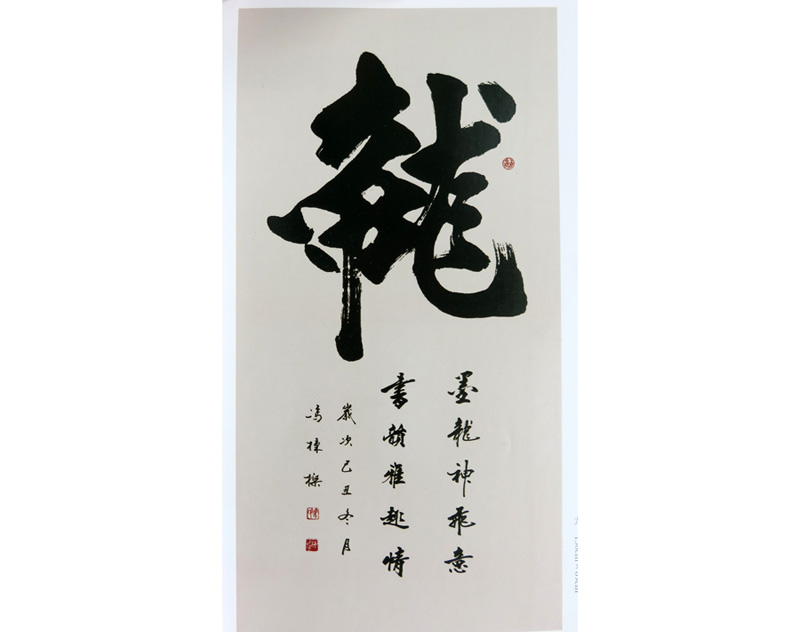 龍
墨龍神飛意
書韻雅趣情
歲次己丑冬月
馮棟樑